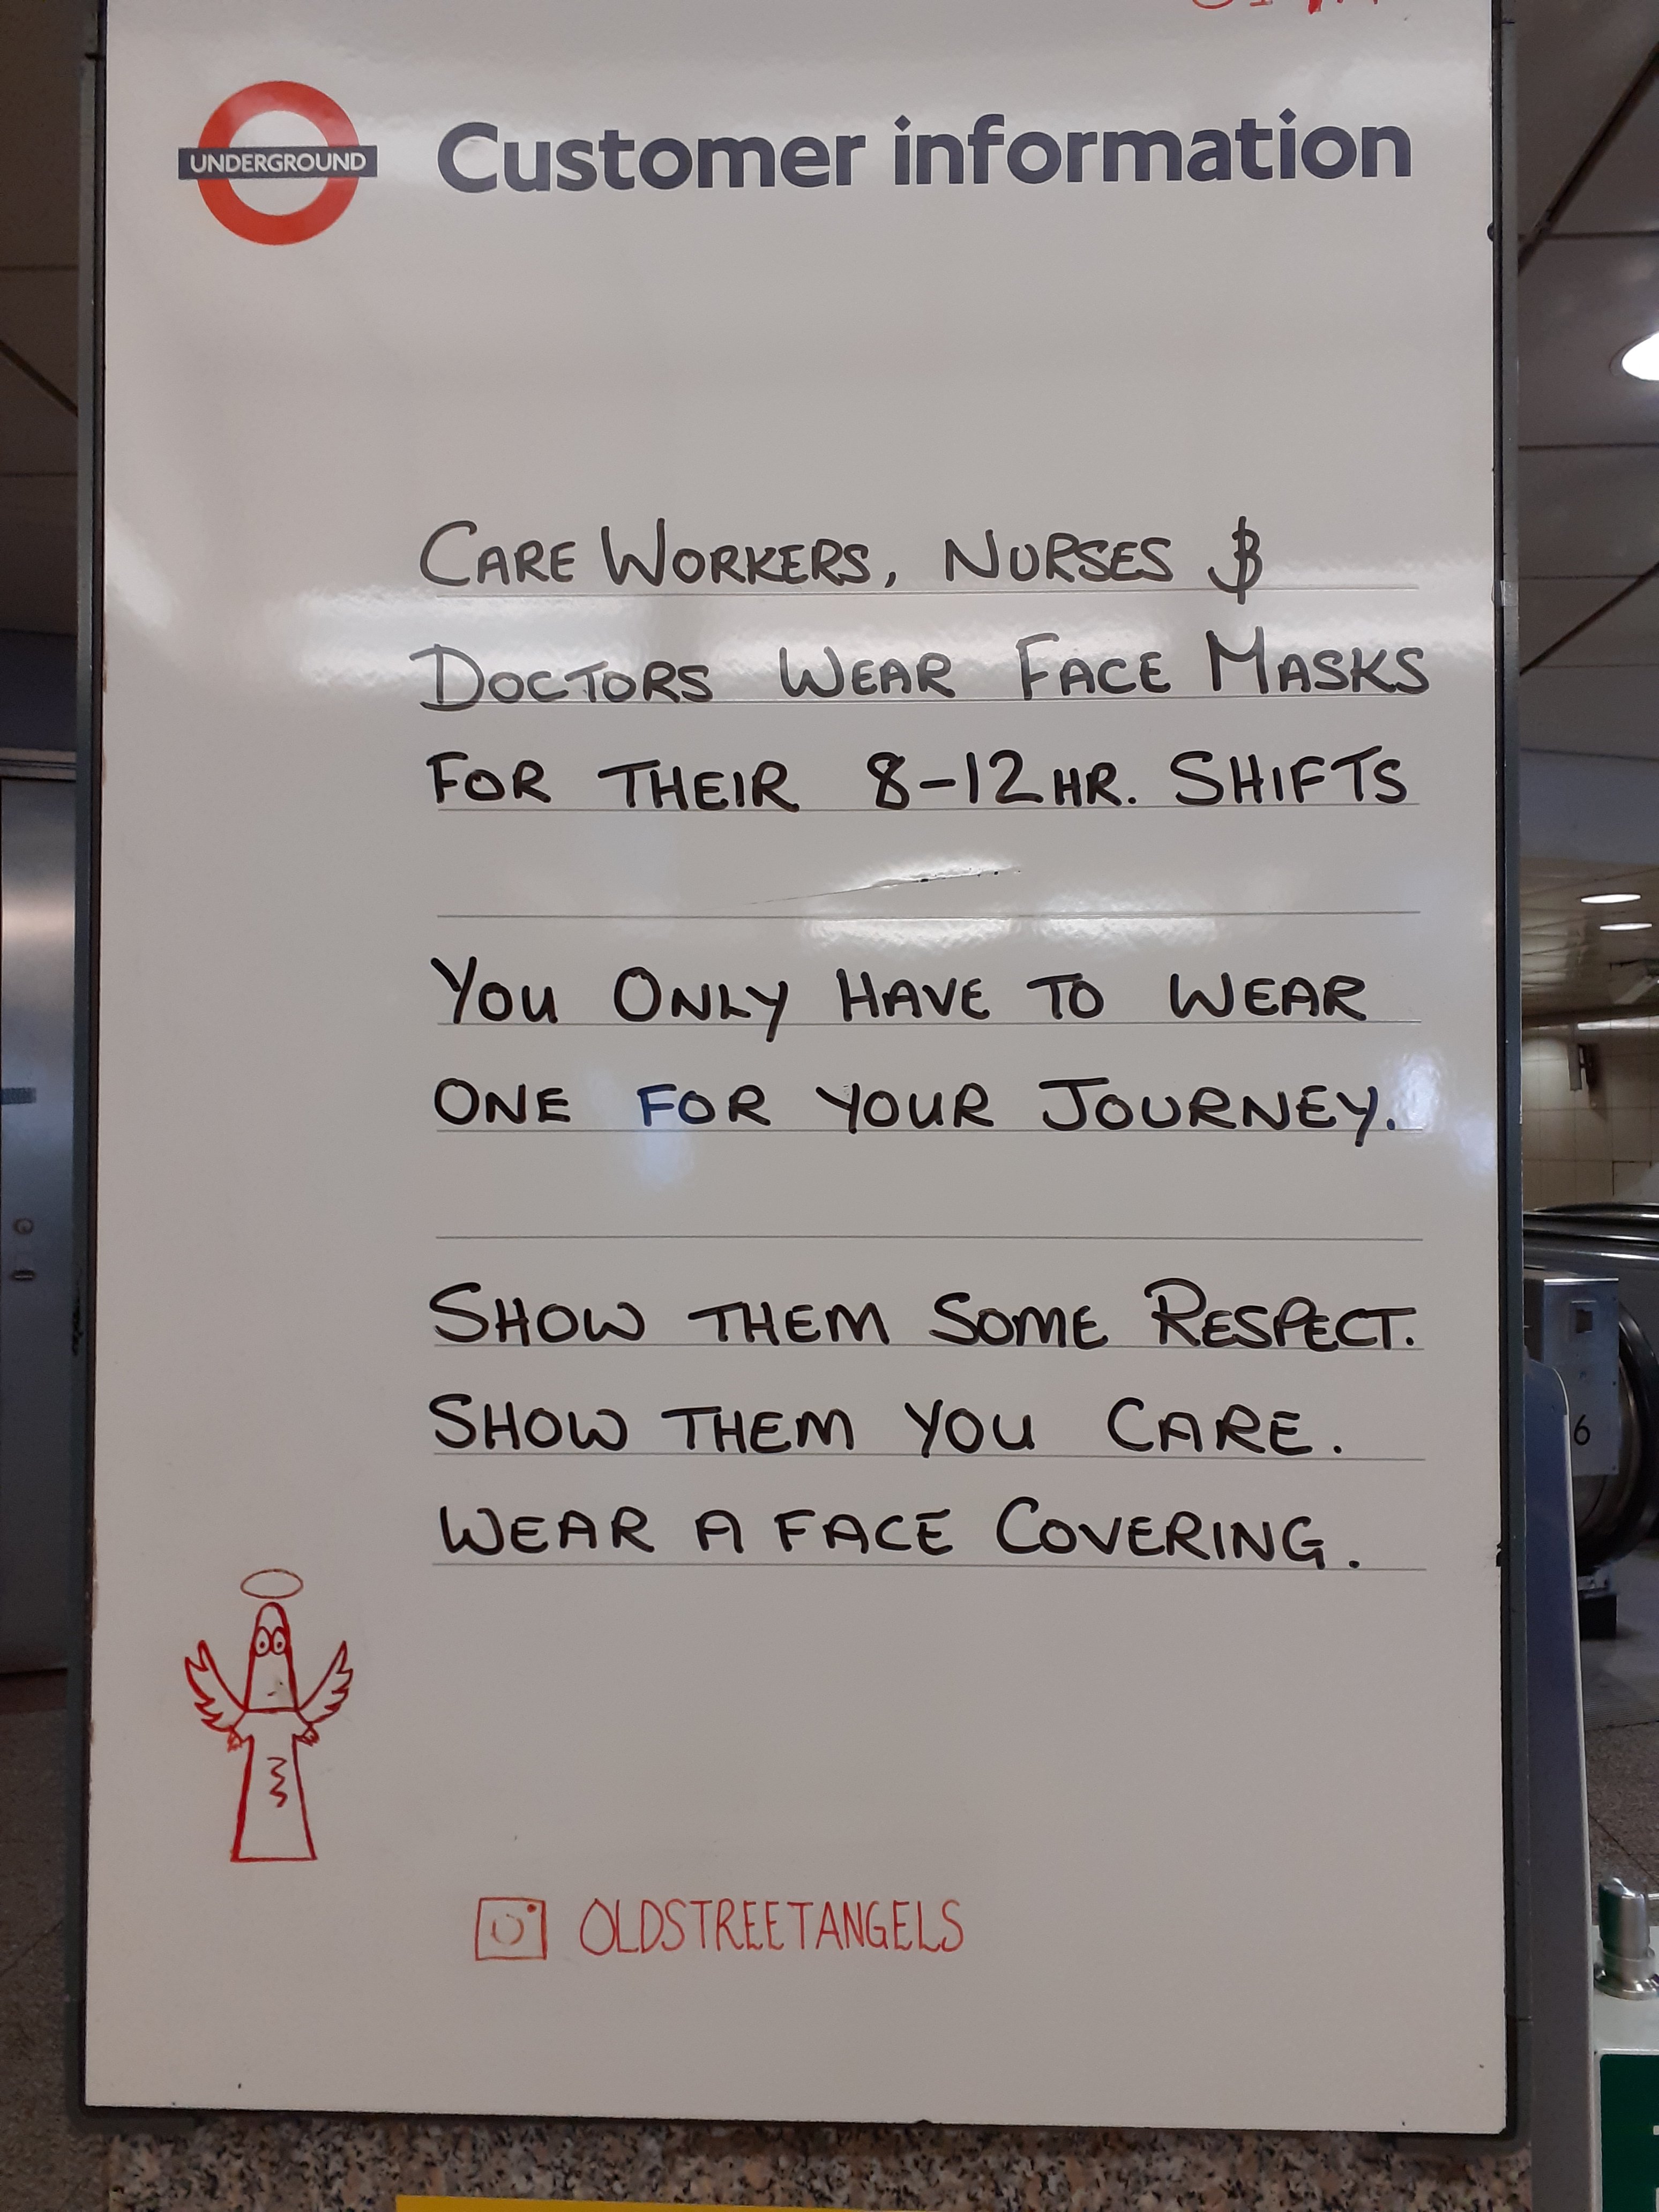 UNDERGROUND
Customer information
CARE WORKERS, NURSES &
DOCTORS WEAR FACE MASKS
FOR THEIR 8-12HR. SHIFTS
YOU ONLY HAVE TO WEAR
ONE FOR YOUR JOURNEY.
SHOW THEM SOME RESPECT.
SHOW THEM YOU CARE.
WEAR A FACE COVERING.
OLDSTREETANGELS
6